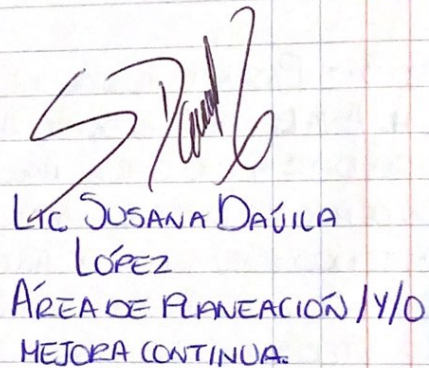 LIC. SUSANA DAÚILA
LÓPEZ
ÁREA DE PLANEACIÓN /Y/O
MEJORA CONTINUA.